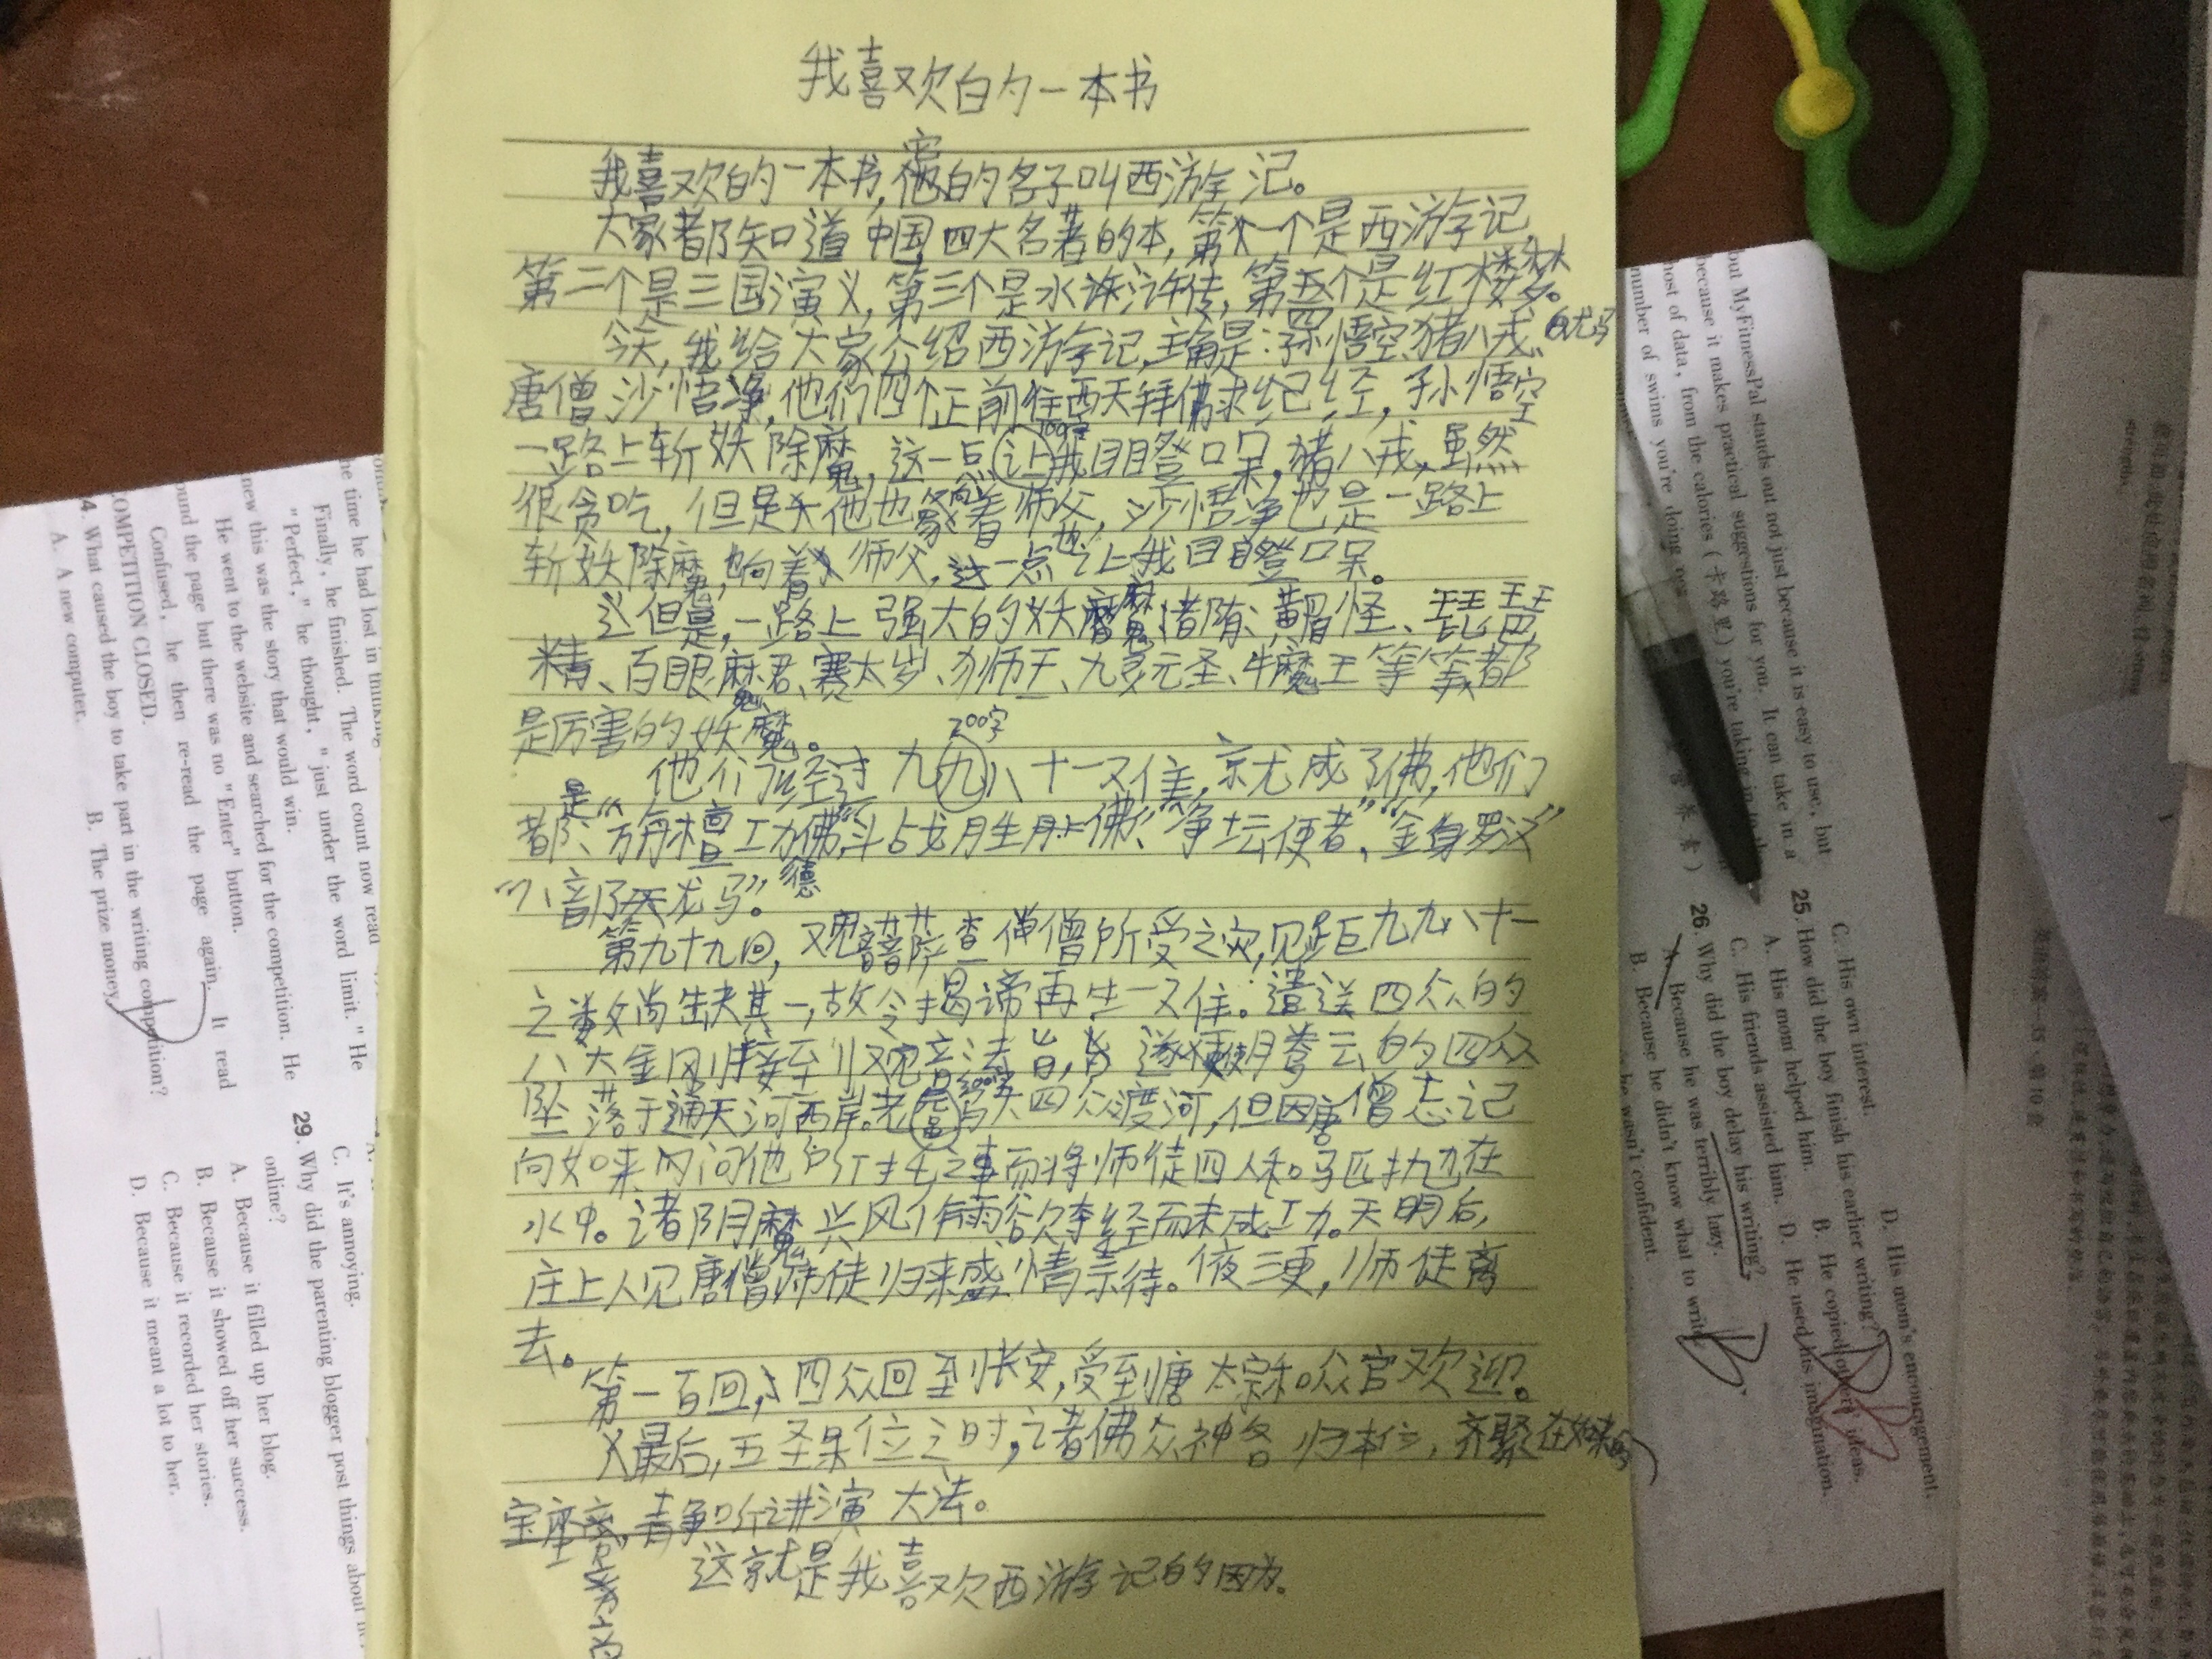 我喜欢的一本书
我喜欢的一本书,它的名子叫西游记。
大家都知道中国四大名著的本,第一个是西游记,
第二个是三国演义,第三个是水浒传,第四个是红楼梦。
今天,我给大家介绍西游记,主角是:孙悟空、猪八戒、白龙马
唐僧沙悟净,他们四个正前往西天拜佛求经,孙悟空
100字
一路上斩妖除魔,这一点让我目瞪口呆,猪八戒,虽然
很贪吃,但是他也向着师父,沙悟净也是一路上
斩妖除魔,也向着师父,这一点也让我目瞪口呆。
但是,一路上强大的妖魔有:黄眉怪、琵琶
精、百眼魔君、赛太岁、狮王、九灵元圣、牛魔王等等都
是厉害的妖魔。
200字
他们经过九九八十一难,就成了佛,他们
都是“旃檀功德佛”“斗战胜佛”“净坛使者”“金身罗汉”
“八部天龙马”。
第九十九回,观音菩萨查唐僧所受之灾,见距九九八十一
之数尚缺其一,故令揭谛再生一难。遣送四众的
八大金刚接到观音法旨,遂使腾云的四众
300字
坠落于通天河西岸。老鼋驮四众渡河,但因唐僧忘记
向如来询问他所托之事而将师徒四人和马匹抛在
水中。诸阴魔兴风作雨欲夺经而未成功。天明后,
庄上人见唐僧师徒归来盛情款待。夜三更,师徒离
去。
第一百回,四众回到长安,受到唐太宗和众官欢迎。
最后,五圣果位之时,诸佛众神各归本位,齐聚在如来
宝座旁,静听讲演大法。
这就是我喜欢西游记的因为。
he time he had lost in thinking
Finally, he finished. The word count now read
"Perfect," he thought, "just under the word limit." He
new this was the story that would win.
He went to the website and searched for the competition. He
ound the page but there was no "Enter" button.
Confused, he then re-read the page again. It read
OMPETITION CLOSED.
4. What caused the boy to take part in the writing competition?
A. A new computer.
B. The prize money.
C. It's annoying.
29. Why did the parenting blogger post things about
online?
A. Because it filled up her blog.
B. Because it showed off her success.
C. Because it recorded her stories.
D. Because it meant a lot to her.
but MyFitnessPal stands out not just because it is easy to use, but
because it makes practical suggestions for you. It can take in a
host of data, from the calories (卡路里) you're taking in to the
number of swims you're doing
C. His own interest.
D. His mom's encouragement.
25. How did the boy finish his earlier writing?
A. His mom helped him.
B. He copied others' ideas.
C. His friends assisted him.
D. He used his imagination.
26. Why did the boy delay his writing?
A. Because he was terribly lazy.
B. Because he didn't know what to write.
he wasn't confident.